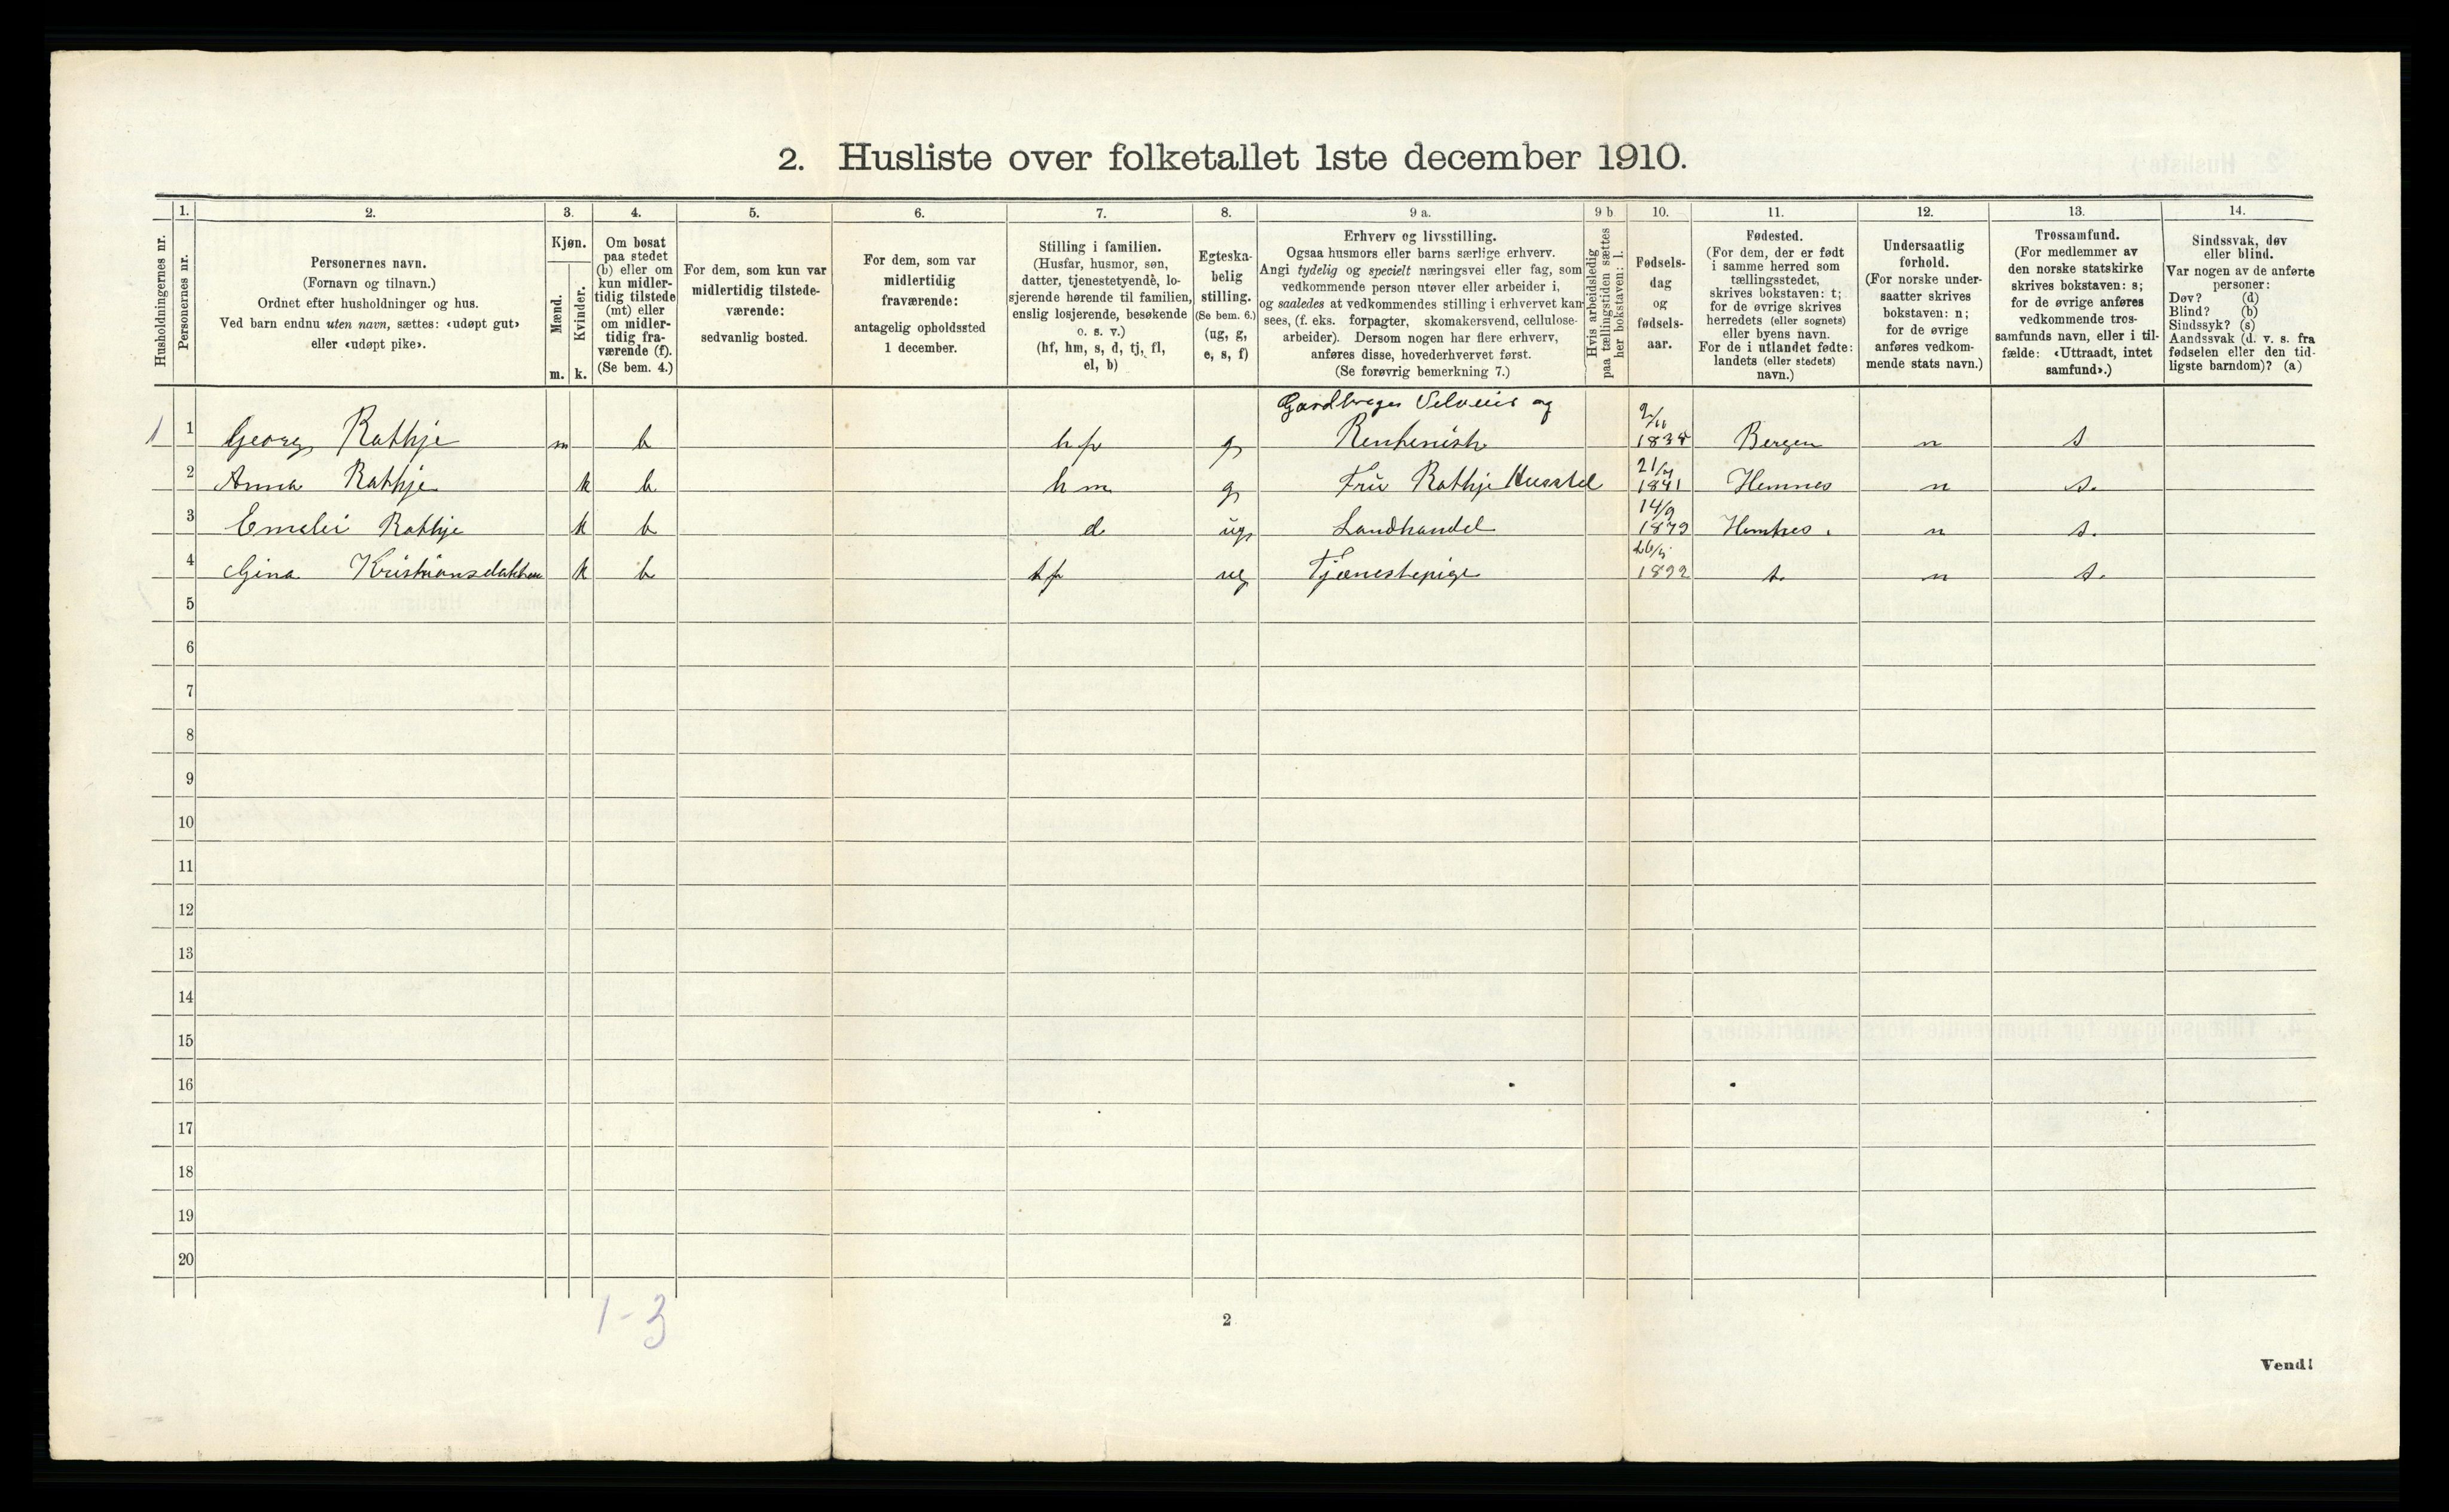 2. Husliste over folketallet 1ste december 1910.
Husholdningernes nr.
1.
Personernes nr.
2.
Personernes navn.
(Fornavn og tilnavn.)
Ordnet efter husholdninger og hus.
Ved barn endnu uten navn, sættes: «udøpt gut»
eller «udøpt pike».
3.
Kjøn.
Mænd.
Kvinder.
m. k.
4.
Om bosat
paa stedet
(b) eller om
kun midler-
tidig tilstede
(mt) eller
om midler-
tidig fra-
værende (f).
(Se bem. 4.)
5.
For dem, som kun var
midlertidig tilstede-
værende:
sedvanlig bosted.
6.
For dem, som var
midlertidig
fraværende:
antagelig opholdssted
1 december.
7.
Stilling i familien.
(Husfar, husmor, søn,
datter, tjenestetyende, lo-
sjerende hørende til familien,
enslig losjerende, besøkende
o. s. v.)
(hf, hm, s, d, tj, fl,
el, b)
8.
Egteska-
belig
stilling.
(Se bem. 6.)
(ug, g,
e, s, f)
9 a.
Erhverv og livsstilling.
Ogsaa husmors eller barns særlige erhverv.
Angi tydelig og specielt næringsvei eller fag, som
vedkommende person utøver eller arbeider i,
og saaledes at vedkommendes stilling i erhvervet kan
sees, (f. eks. forpagter, skomakersvend, cellulose-
arbeider). Dersom nogen har flere erhverv,
anføres disse, hovederhvervet først.
(Se forøvrig bemerkning 7.)
9 b
Hvis arbeidsledig
paa tællingstiden sættes
her bokstaven: l.
10.
Fødsels-
dag
og
fødsels-
aar.
11.
Fødested.
(For dem, der er født
i samme herred som
tællingsstedet,
skrives bokstaven: t;
for de øvrige skrives
herredets (eller sognets)
eller byens navn.
For de i utlandet fødte:
landets (eller stedets)
navn.)
12.
Undersaatlig
forhold.
(For norske under-
saatter skrives
bokstaven: n;
for de øvrige
anføres vedkom-
mende stats navn.)
13.
Trossamfund.
(For medlemmer av
den norske statskirke
skrives bokstaven: s;
for de øvrige anføres
vedkommende tros-
samfunds navn, eller i til-
fælde: «Uttraadt, intet
samfund».)
14.
Sindssvak, døv
eller blind.
Var nogen av de anførte
personer:
Døv? (d)
Blind? (b)
Sindssyk? (s)
Aandssvak (d. v. s. fra
fødselen eller den tid-
ligste barndom)? (a)
1 1 Georg Rathje m b hf g og Bergen n s
2 Anna Rathje k b hm g Fru Rathje Husstel 1841 Hemnes n s.
3 Rathje k b d ug Landhandel 14/9 1879 n s.
4 Gina k b ug Tjenestepige 1892 t. n s.
5
6
7
8
9
10
11
12
13
14
15
16
17
18
19
20
1-3
2
Vend!